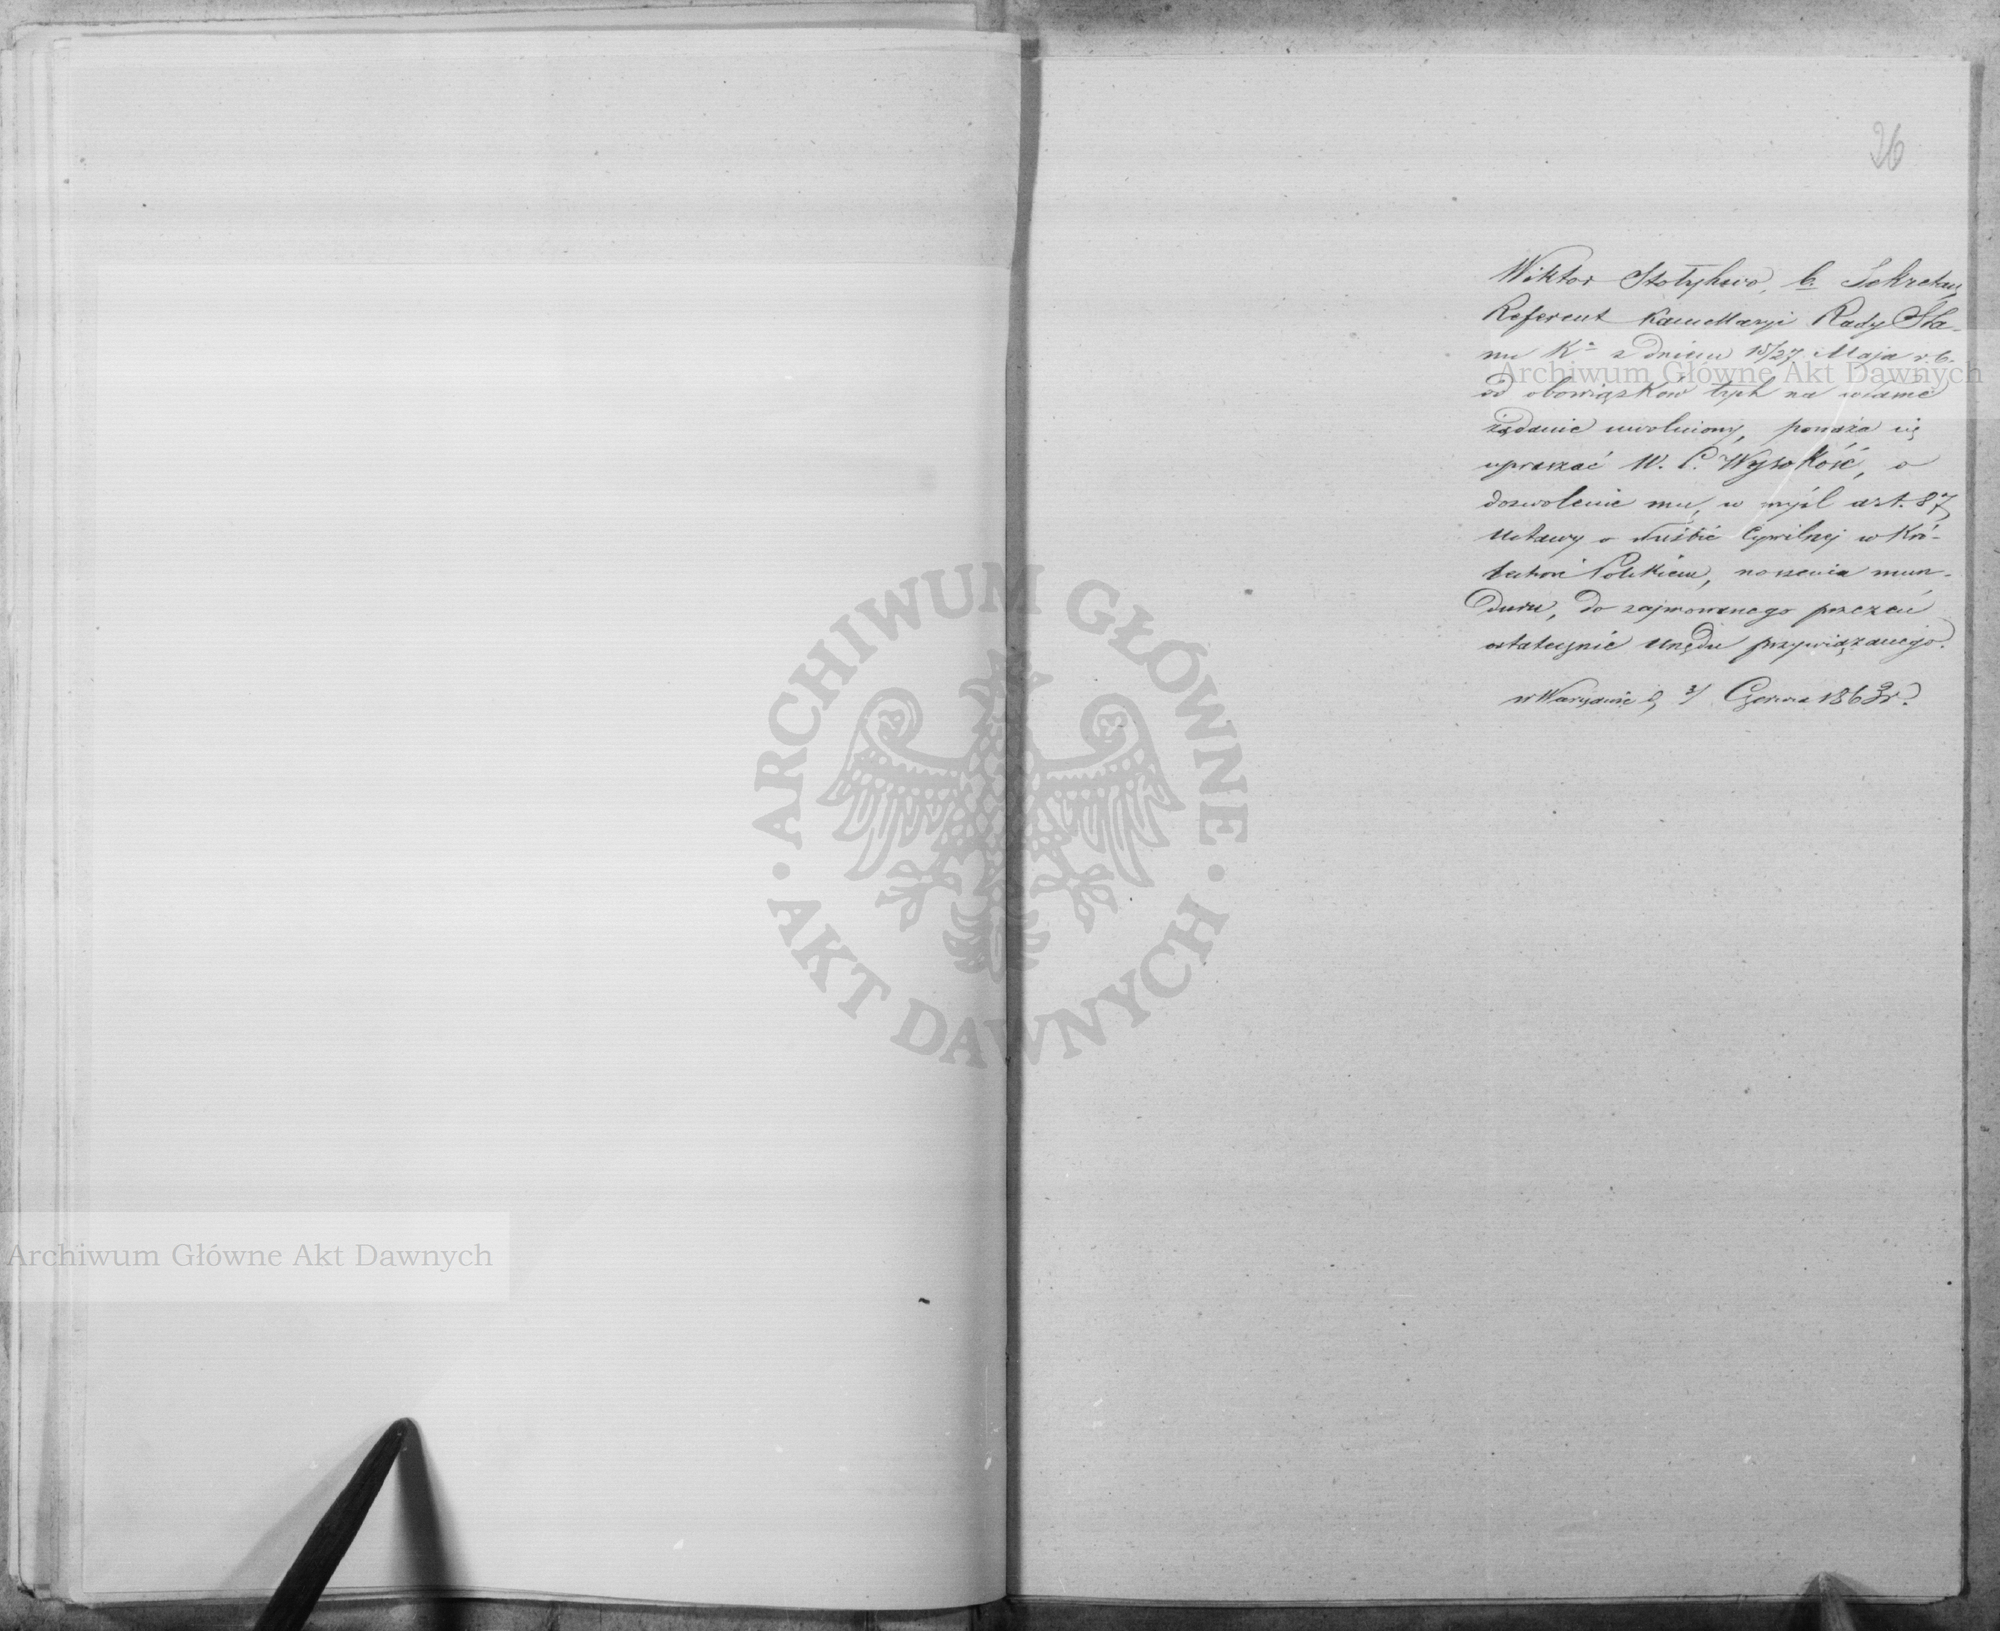 26
Wiktor Stołyhwo, b. Sekretarz
Referent Kancellaryi Rady Sta-
nu Kr. z dniem 15/27 Maja r. b.
od obowiązków tych na własne
żądanie uwolniony, poważa się
upraszać W. C. Wysokość, o
dozwolenie mu, w myśl art. 87
Ustawy o służbie Cywilnej w Kró-
lestwie Polskiem, noszenia mun-
duru, do zajmowanego przezeń
ostatecznie urzędu przywiązanego.
w Warszawie d. Czerwca 1863 r.
Archiwum Główne Akt Dawnych
ARCHIWUM GŁÓWNE
AKT DAWNYCH
Archiwum Główne Akt Dawnych